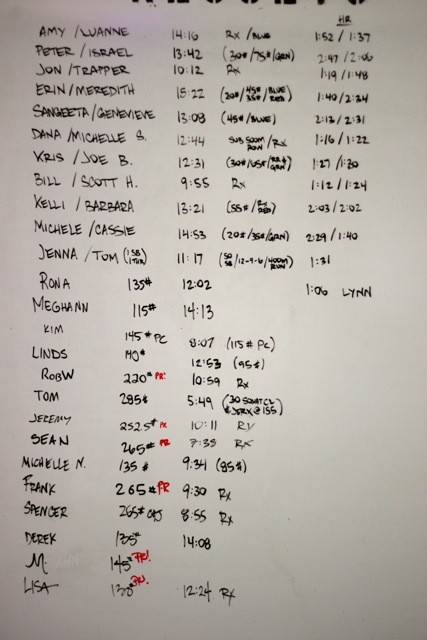 RESULTS
HR
AMY / LUANNE 14:16 RX / BLUE 1:52 / 1:37
PETER / ISRAEL 13:42 (30#/75#/GRN) 2:47 / 2:06
JON / TRAPPER 10:12 RX 1:19 / 1:48
ERIN / MEREDITH 15:22 (20#/45#/BLUE 35#/RED) 1:40 / 2:24
SANGEETA / GENEVIEVE 13:08 (45#/BLUE) 2:13 / 2:31
DANA / MICHELLE S. 12:44 SUB 500M ROW / RX 1:16 / 1:22
KRIS / JOE B. 12:31 1:27 / 1:30
BILL / SCOTT H. 9:55 RX 1:12 / 1:24
KELLI / BARBARA 13:21 2:03 / 2:02
MICHELE / CASSIE 14:53 (20#/35#/GRN) 2:29 / 1:40
JENNA / TOM 11:17 1:31
RONA 135# 12:02 1:06 LYNN
MEGHANN 115# 14:13
KIM 145# PC 8:07 (115# PC)
LINDS 140# 12:53 (95#)
ROB W 220# PR! 10:59 RX
TOM 285# 5:49
JEREMY 252.5# PR 10:11 RX
SEAN 265# PR 7:38 RX
MICHELLE N. 135# 9:34 (85#)
FRANK 265# PR 9:30 RX
SPENCER 265# C&J 8:55 RX
DEREK 135# 14:08
M. 145# PR!
LISA 130# PR! 12:24 RX